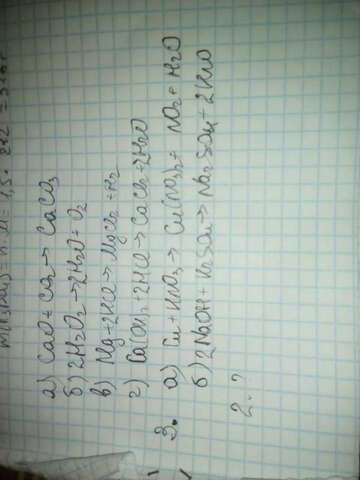 а) CaO + CO₂ → CaCO₃
б) 2H₂O₂ → 2H₂O + O₂
в) Mg + 2HCl → MgCl₂ + H₂
г) Ca(OH)₂ + 2HCl → CaCl₂ + 2H₂O
3. а) Cu + HNO₃ → Cu(NO₃)₂ + NO₂ + H₂O
б) 2NaOH + H₂SO₄ → Na₂SO₄ + 2H₂O
2. ?